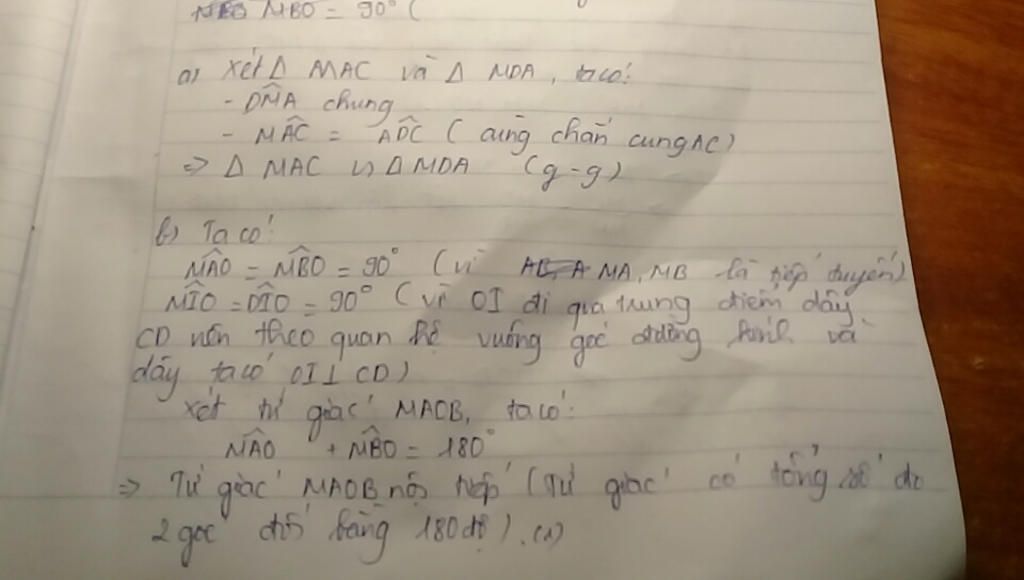 MBO = 90° (
a) Xét Δ MAC và Δ MDA, ta có:
- DM̂A chung
- MÂC = AD̂C (cùng chắn cung AC)
=> Δ MAC ∽ Δ MDA (g-g)
b) Ta có:
MÂO = MB̂O = 90° (vì MA, MB là tiếp tuyến)
MÎO = DÎO = 90° (vì OI đi qua trung điểm dây
CD nên theo quan hệ vuông góc đường kính và
dây ta có OI ⊥ CD)
Xét tứ giác MAOB, ta có:
MÂO + MB̂O = 180°
=> Tứ giác MAOB nội tiếp (Tứ giác có tổng số đo
2 góc đối bằng 180 độ). (1)